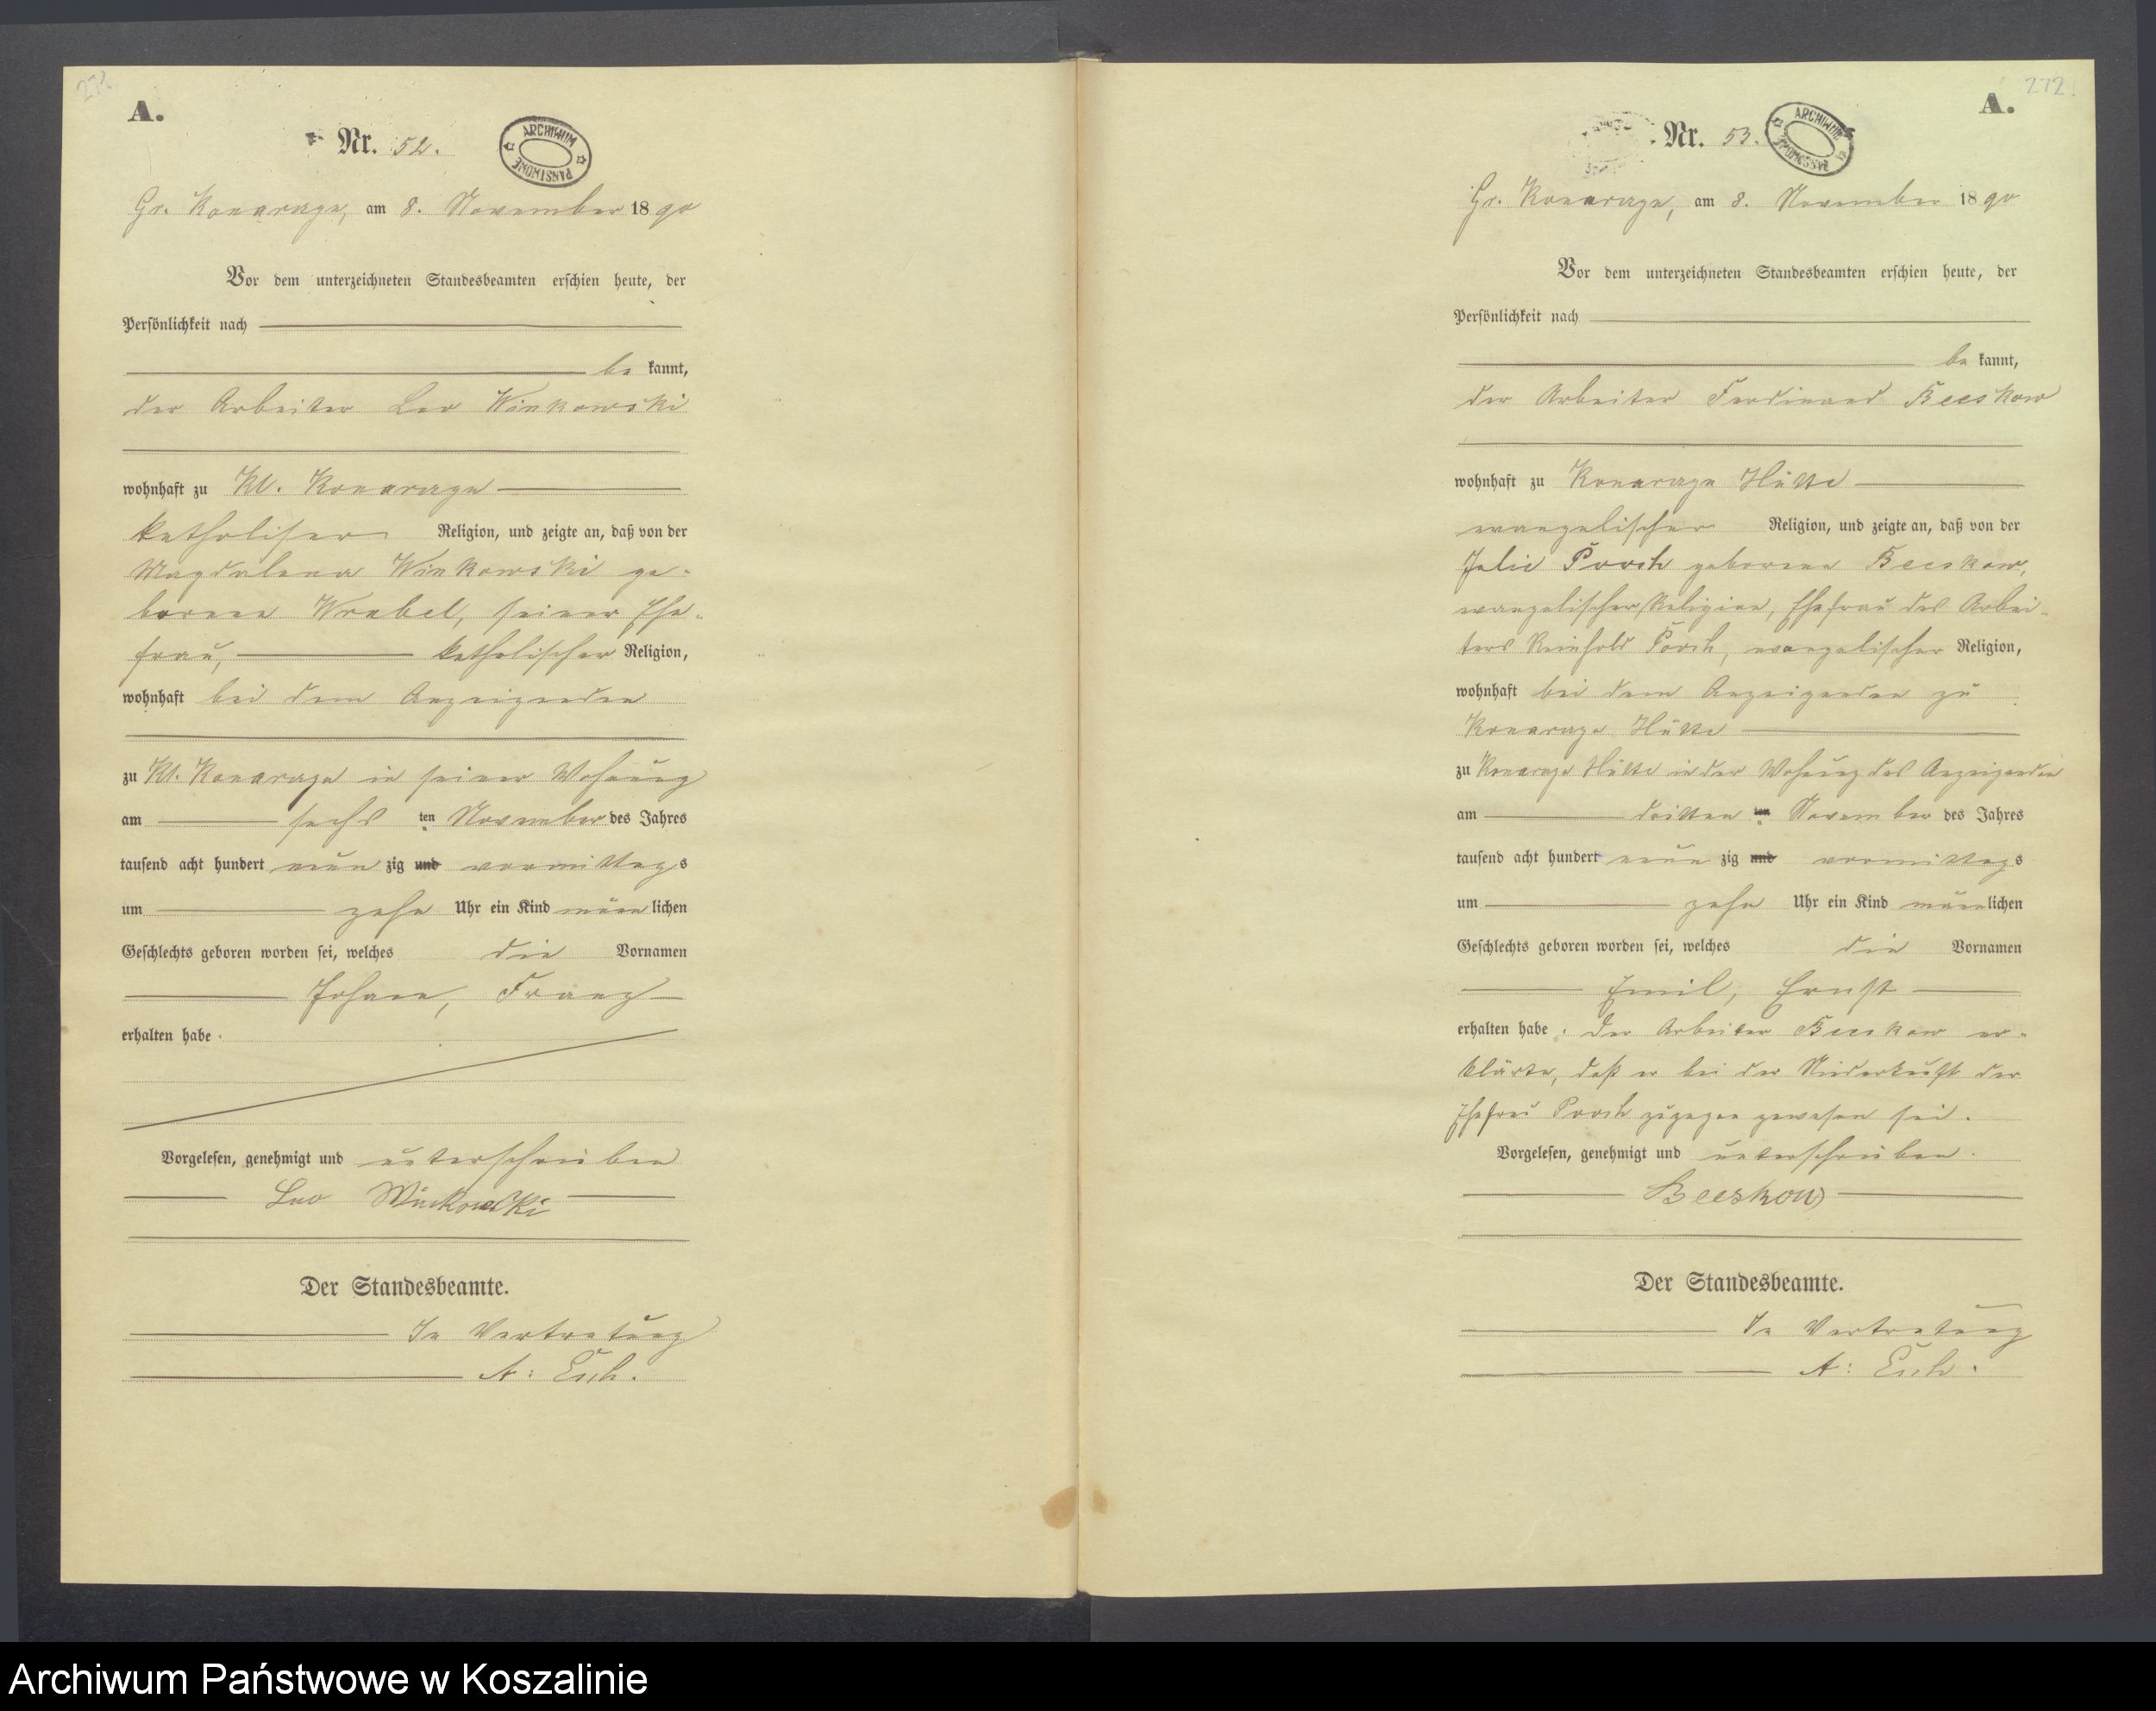 A.
Nr. 52.
ARCHIWUM PAŃSTWOWE
Gr. Konarzyn, am 8. November 1890
Vor dem unterzeichneten Standesbeamten erschien heute, der
Persönlichkeit nach
be kannt,
der Arbeiter Leo Winkowski
wohnhaft zu Kl. Konarzyn
katholischer Religion, und zeigte an, daß von der
Magdalena Winkowski ge-
borene Wrabel, seiner Ehe-
frau, katholischer Religion,
wohnhaft bei dem Anzeigenden
zu Kl. Konarzyn in seiner Wohnung
am sechs ten November des Jahres
tausend acht hundert neun zig und vormittags
um zehn Uhr ein Kind männlichen
Geschlechts geboren worden sei, welches die Vornamen
Johann, Franz
erhalten habe.
Vorgelesen, genehmigt und unterschrieben
Leo Winkowski
Der Standesbeamte.
In Vertretung
A.
272
A.
Nr. 53.
ARCHIWUM PAŃSTWOWE
Gr. Konarzyn, am 8. November 1890
Vor dem unterzeichneten Standesbeamten erschien heute, der
Persönlichkeit nach
be kannt,
der Arbeiter Ferdinand Beeskow
wohnhaft zu Konarzyn Hütte
evangelischer Religion, und zeigte an, daß von der
Julie Porsch geborene Beeskow,
evangelischer Religion, Ehefrau des Arbei-
ters Reinhold Porsch, evangelischer Religion,
wohnhaft bei dem Anzeigenden zu
Konarzyn Hütte
zu Konarzyn Hütte in der Wohnung des Anzeigenden
am dritten ten November des Jahres
tausend acht hundert neun zig und vormittags
um zehn Uhr ein Kind männlichen
Geschlechts geboren worden sei, welches die Vornamen
Emil, Ernst
erhalten habe. Der Arbeiter Beeskow er-
klärte, daß er bei der Niederkunft der
Ehefrau Porsch zugegen gewesen sei.
Vorgelesen, genehmigt und unterschrieben.
Beeskow
Der Standesbeamte.
In Vertretung
A.
Archiwum Państwowe w Koszalinie